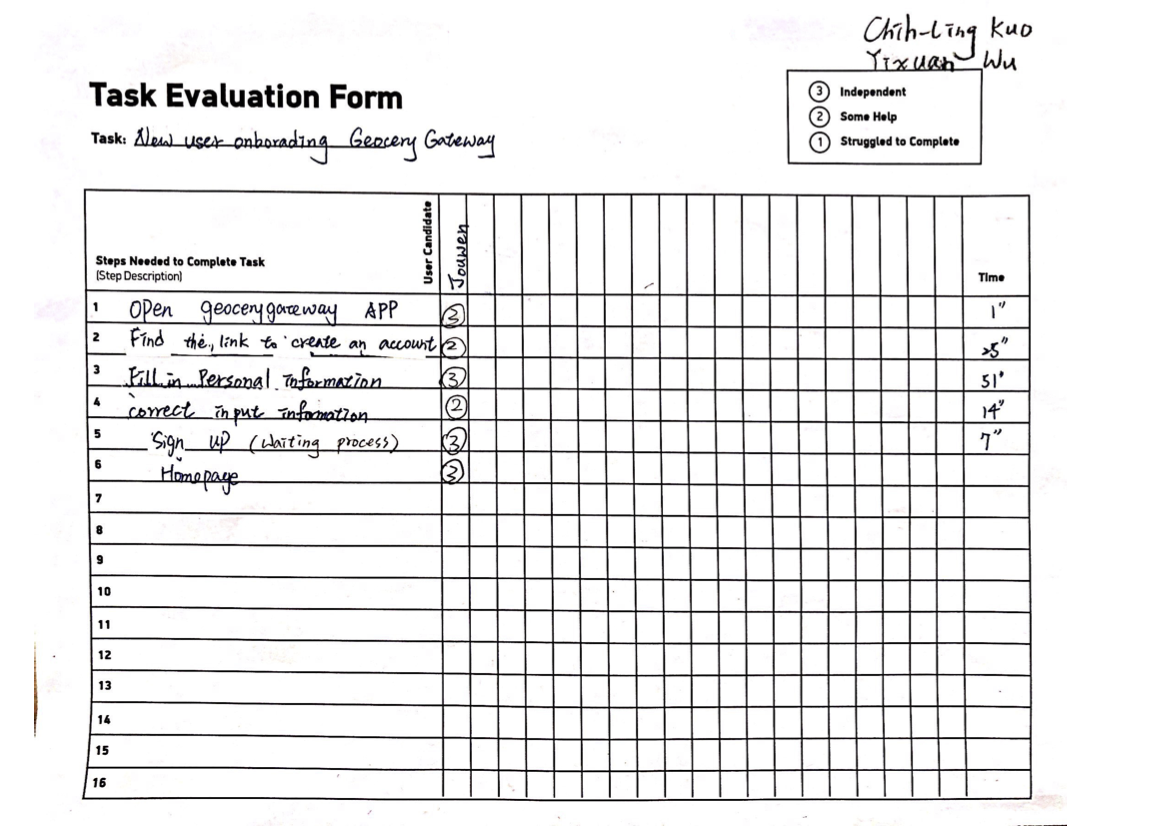 Chih-Ling Kuo
Yixuan Wu
Task Evaluation Form
Task: New user onborading Geocery Gateway
3 Independent
2 Some Help
1 Struggled to Complete
Steps Needed to Complete Task
(Step Description)
User Candidate
Jouwen
Time
1 Open geocerygateway APP 3 1"
2 Find the link to create an account 2 25"
3 Fill in Personal information 3 51"
4 correct input information 2 14"
5 Sign up (waiting process) 3 7"
6 Homepage 3
7
8
9
10
11
12
13
14
15
16